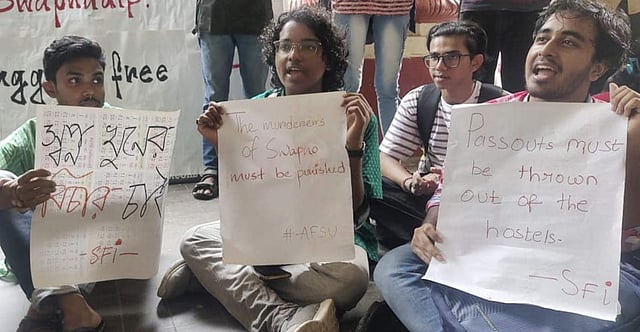 Swapnadip!
free
স্বপ্ন খুনের
বিচার চাই
-SFi-
The murderers
of Swapno
must be punished
#-AFSU
Passouts must
be thrown
out of the
hostels.
—SFi